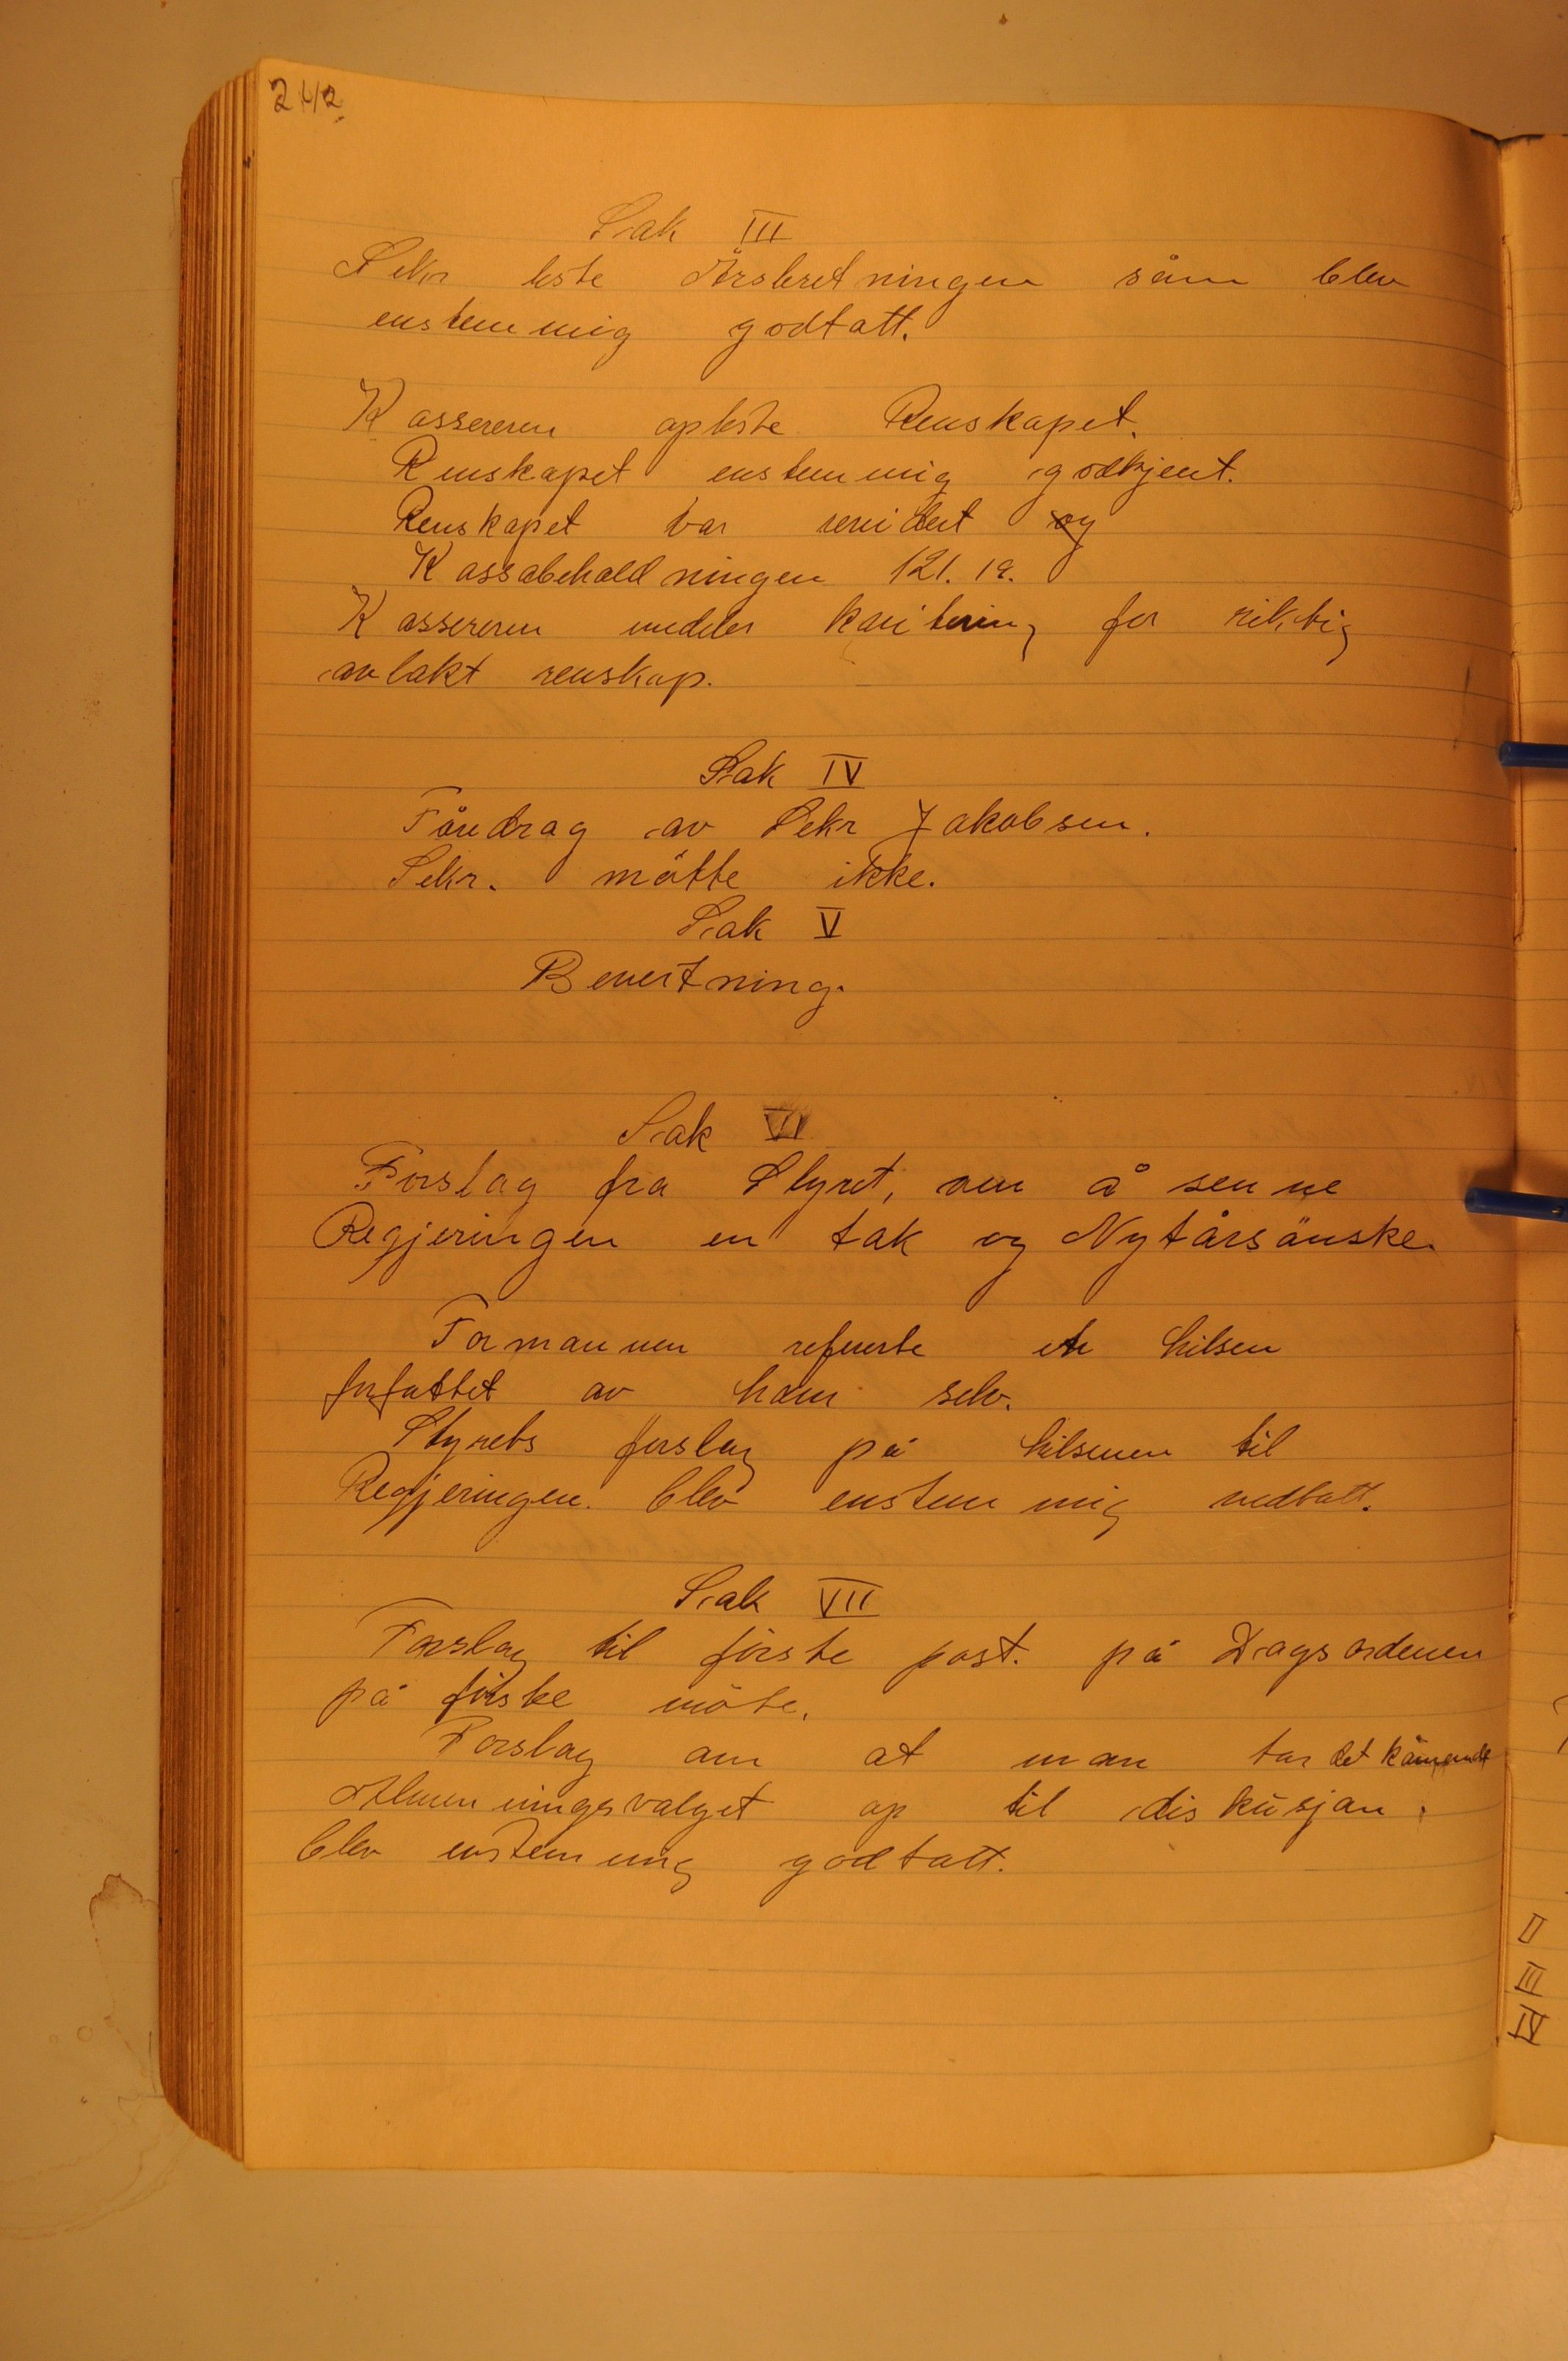 242
Sak III
Sekr leste Årsberetningen såm blev
enstemmig godtatt.
Kassereren opleste Renskapet.
Renskapet enstemmig godkjent.
Renskapet var revidert og
Kassabeholdningen 121.19.
Kassereren meddeles kvitering for riktig
avlakt renskap.
Sak IV
Fåredrag av Sekr Jakobsen.
Sekr. møtte ikke.
Sak V
Bevertning.
Sak VI
Forslag fra Styret, om å senne
Regjeringen en tak og Nytårsönske.
Formannen refererte en hilsen
forfattet av ham selv.
Styrets forslag på hilsenen til
Regjeringen. blev enstemmig vedtatt.
Sak VII
Forslag til förste post. på Dagsordenen
på förske möte.
Forslag om at man tar det kåmende
Almenningsvalget op til diskusjon.
blev enstemmig godtatt.
II
III
IV